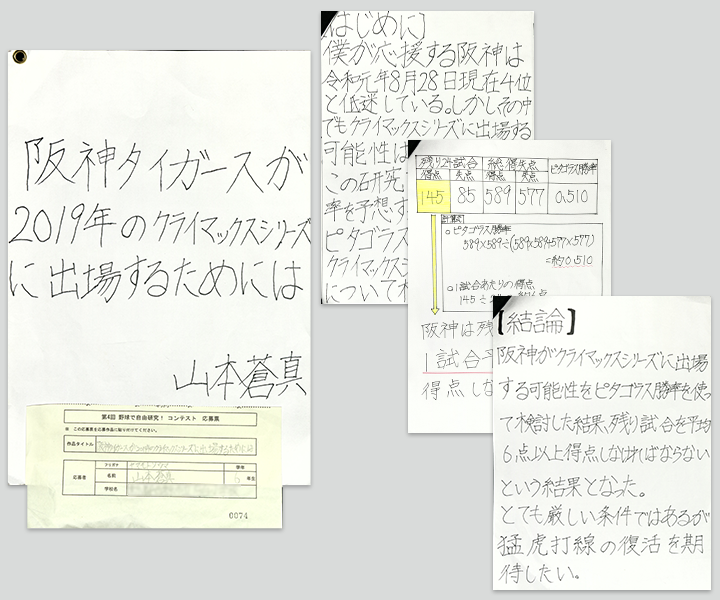 阪神タイガースが
2019年のクライマックスシリーズ
に出場するためには
山本蒼真
第4回 野球で自由研究！コンテスト 応募票
※ この応募票を応募作品に貼り付けてください。
作品タイトル
応募者
フリガナ
学年
名前
山本蒼真
年生
学校名
0074
[はじめに]
僕が応援する阪神は
令和元年8月28日現在4位
と低迷している。しかしその中
でもクライマックスシリーズに出場する
可能性は
この研究
率を予想す
ピタゴラス
クライマックス
について
残り24試合 総得失点 ピタゴラス勝率
得点 失点 得点 失点
145 85 589 577 0.510
計算式
○ピタゴラス勝率
589×589÷(589×589+577×577)
=約0.510
○1試合あたりの得点
145÷
阪神は残
1試合平
得点しな
【結論】
阪神がクライマックスシリーズに出場
する可能性をピタゴラス勝率を使っ
て検討した結果、残り試合を平均
6点以上得点しなければならない
という結果となった。
とても厳しい条件ではあるが
猛虎打線の復活を期
待したい。